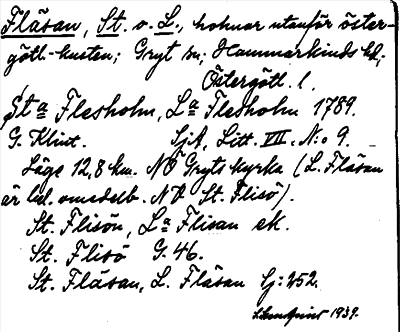 Fläsan, St. o. L., holmar utanför öster-
götl.-kusten; Gryt sn; Hammarkinds hd,
Östergötl. l.
Sta Flesholm, La Flesholm 1789.
G. Klint. SjA, Litt. VIII. N:o 9.
Läge 12,8 km. NO Gryts kyrka (L. Fläsan
är bel. omedelb. NV St. Flisö).
St. Flisön, La Flisan ek.
St. Flisö G. 46.
St. Fläsan, L. Fläsan Sj: 252.
1939.